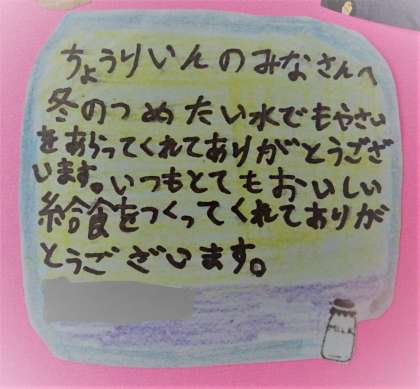 ちょうりいんのみなさんへ
冬のつめたい水でもやさい
をあらってくれてありがとうござ
います。いつもとてもおいしい
給食をつくってくれてありが
とうございます。
MILK